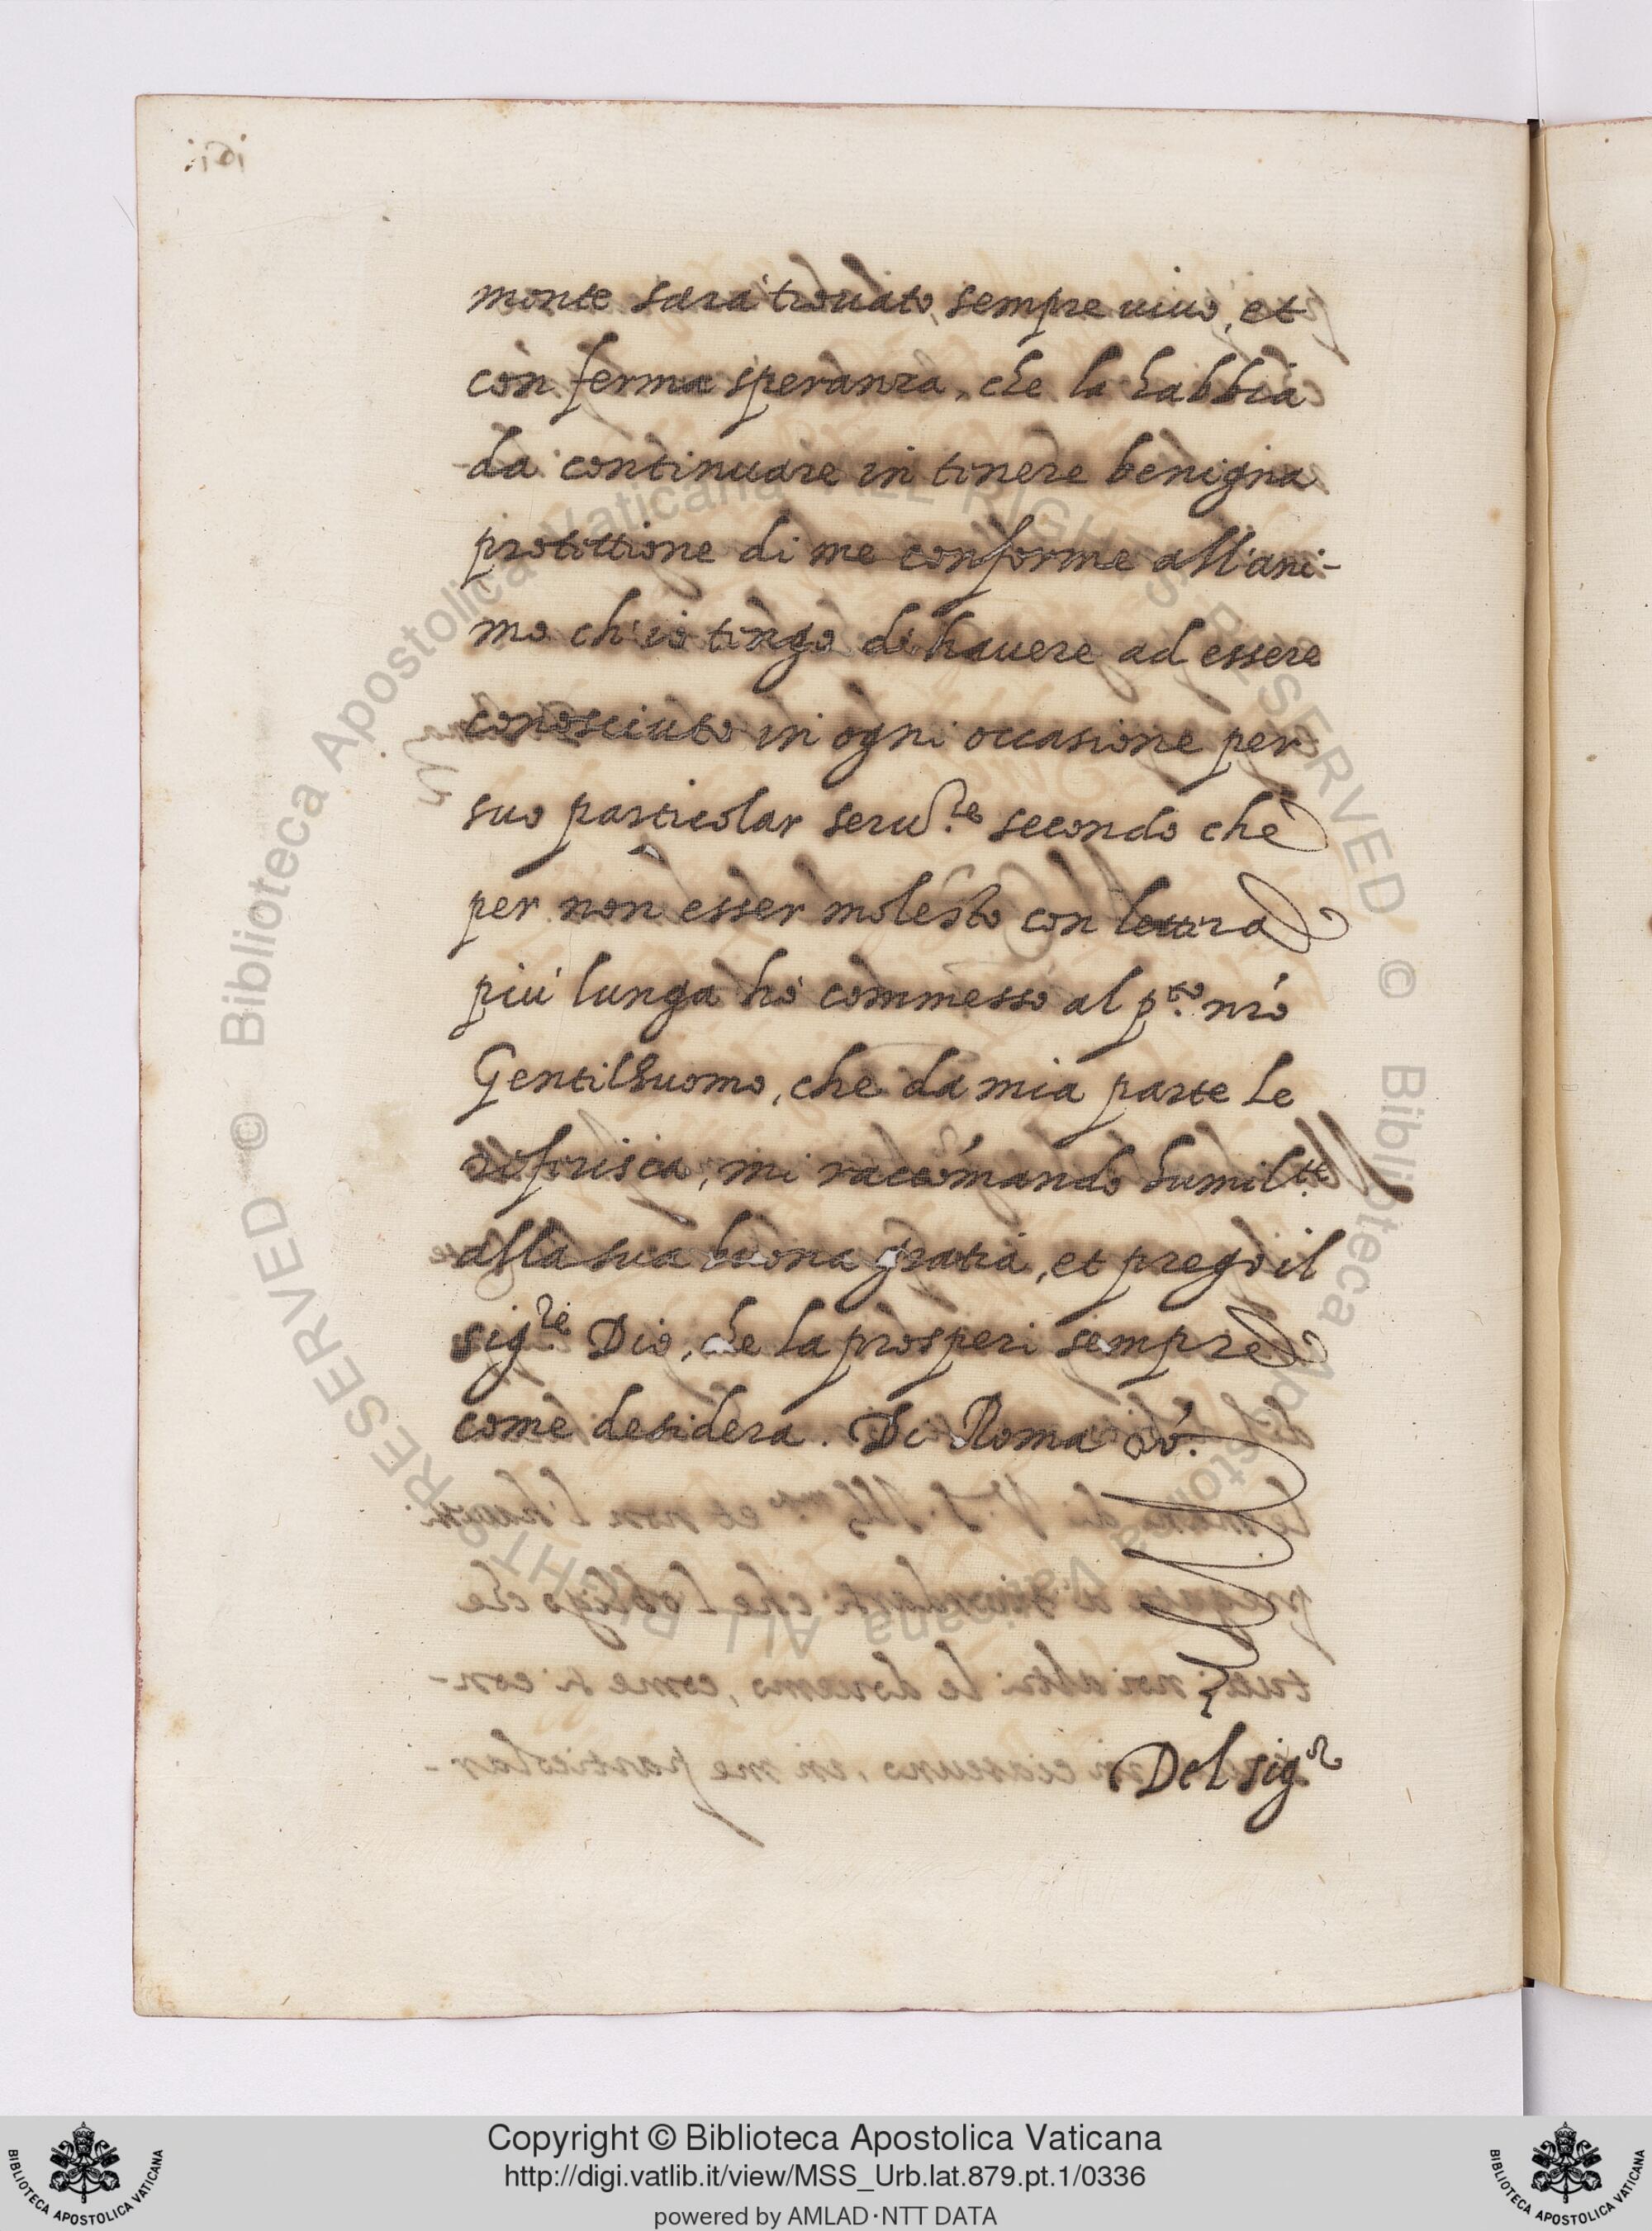 monte sara' trouato, sempre uiuo, et
con ferma speranza, che la habbia
da continuare in tenere benigna
protettione di me conforme all'ani-
mo ch'io tengo di hauere ad essere
conosciuto in ogni occasione per
suo particolar seru.re secondo che
per non esser molesto con lettera
più lunga hò commesso al p.to nr̃o
Gentilhuomo, che da mia parte le
riferisca, mi raccõmando humil.te
alla sua buona gratia, et prego il
sig.re Dio, che la prosperi sempre
come desidera. Di Roma
Del sig.r
Copyright © Biblioteca Apostolica Vaticana
http://digi.vatlib.it/view/MSS_Urb.lat.879.pt.1/0336
powered by AMLAD·NTT DATA
BIBLIOTECA APOSTOLICA VATICANA
BIBLIOTECA APOSTOLICA VATICANA
© Biblioteca Apostolica Vaticana ALL RIGHTS RESERVED © Biblioteca Apostolica Vaticana ALL RIGHTS RESERVED